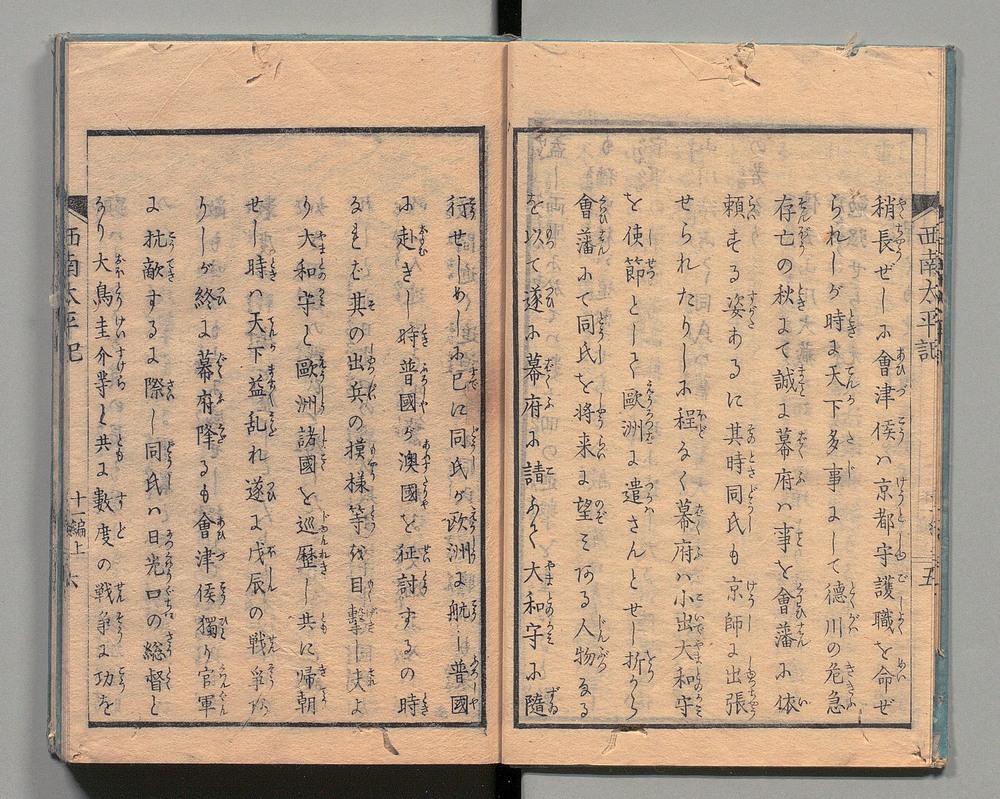 稍長ぜしに會津侯ハ京都守護職を命ぜ
られしが時に天下多事にして徳川の危急
存亡の秋にて誠に幕府ハ事を會藩に依
頼する姿あるに其時同氏も京師に出張
せられたりしに程なく幕府ハ小出大和守
を使節として歐洲に遣さんとせし折から
會藩にて同氏を将来に望ミある人物なる
を以て遂に幕府に請あく大和守に隨
西南太平記
五
行せめしに已に同氏が欧洲に航し普國
に赴むきし時普國が澳國を征討するの時
なれば其の出兵の摸様等を目擊し夫よ
り大和守と歐洲諸國を巡歴し共に帰朝
せし時ハ天下益乱れ遂に戊辰の戦争起
りしが終に幕府降るも會津侯獨り官軍
に抗敵するに際し同氏ハ日光口の総督と
なり大鳥圭介等と共に數度の戦争に功を
西南太平記
十一編上
六